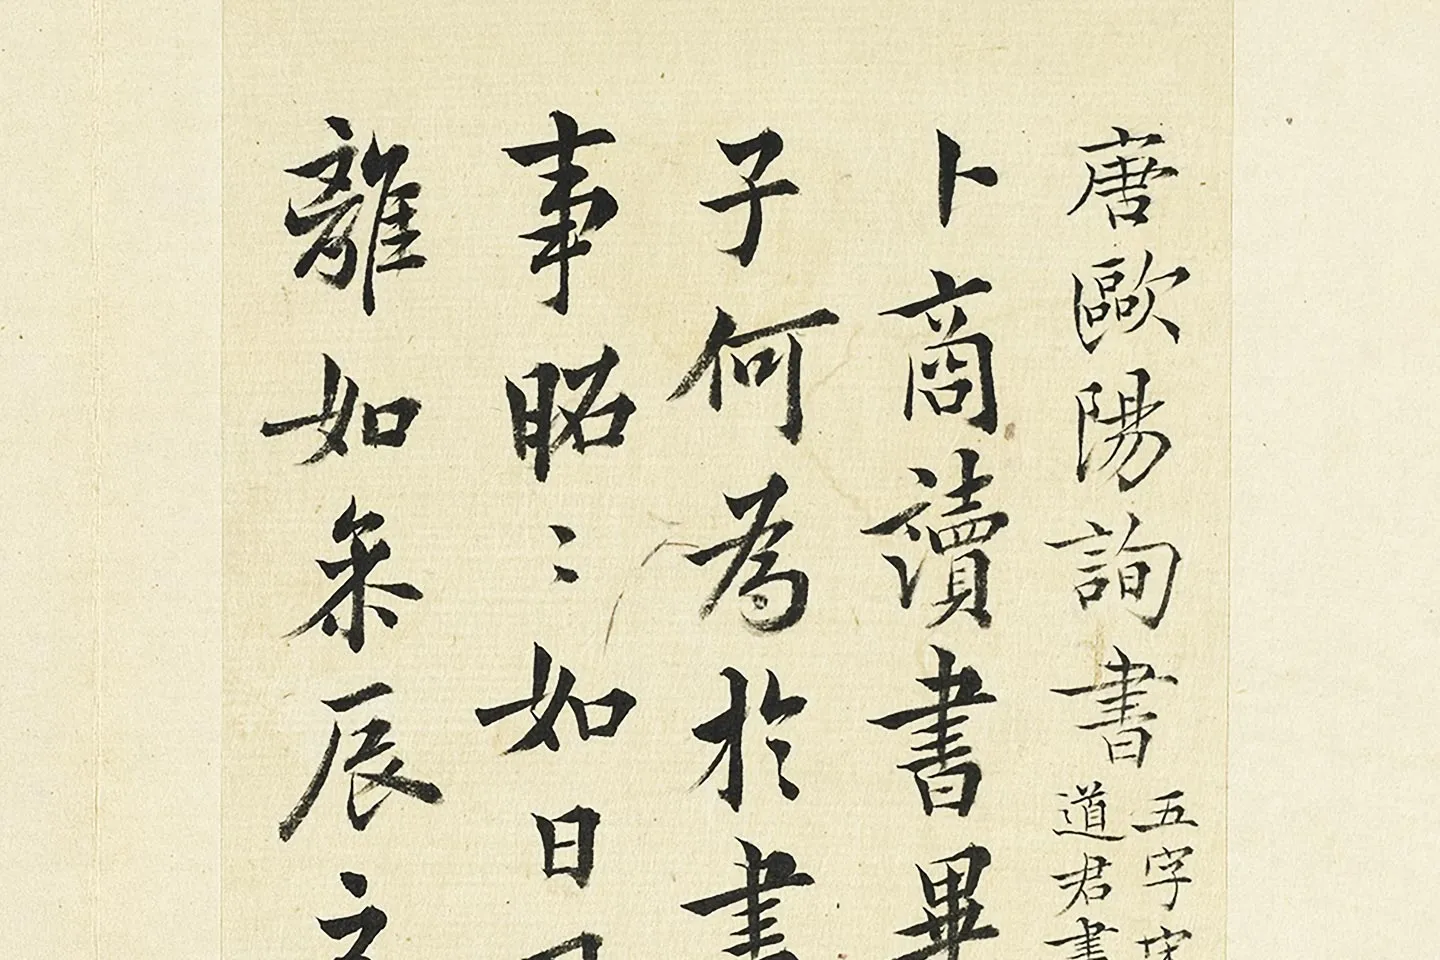 唐歐陽詢書
五字宋
道君書
卜商讀書畢
子何為於書
事昭〻如日
離如参辰之